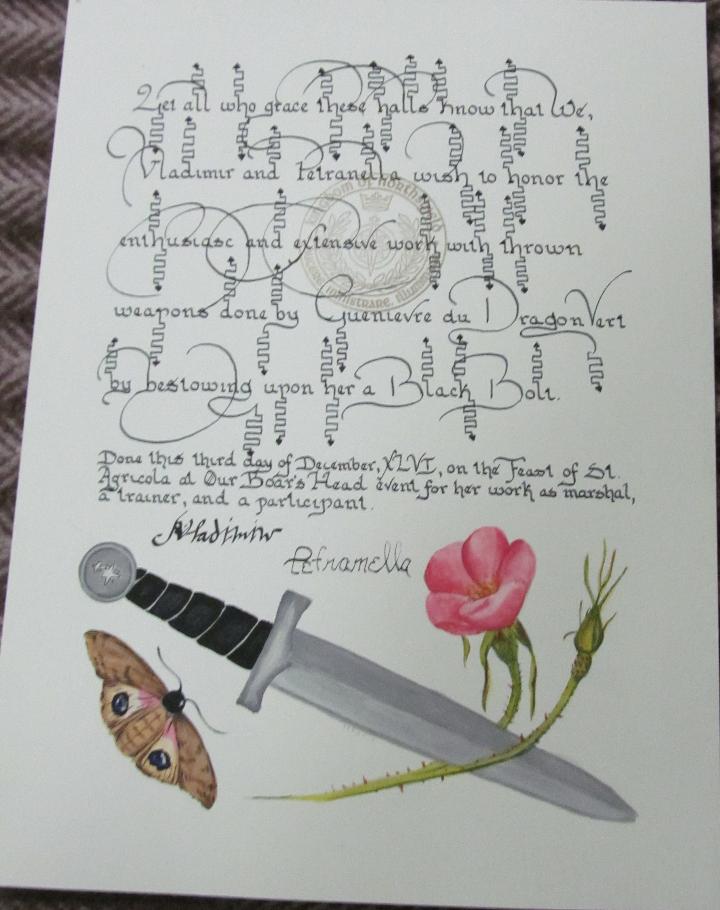 Let all who grace these halls know that We,
Vladimir and Petranella wish to honor the
enthusiasc and extensive work with thrown
weapons done by Guenievre du Dragon Vert
by bestowing upon her a Black Bolt.
Done this third day of December, XLVI, on the Feast of St.
Agricola at Our Boar's Head event for her work as marshal,
a trainer, and a participant.
Vladimir
Petranella
Kingdom of Northshield